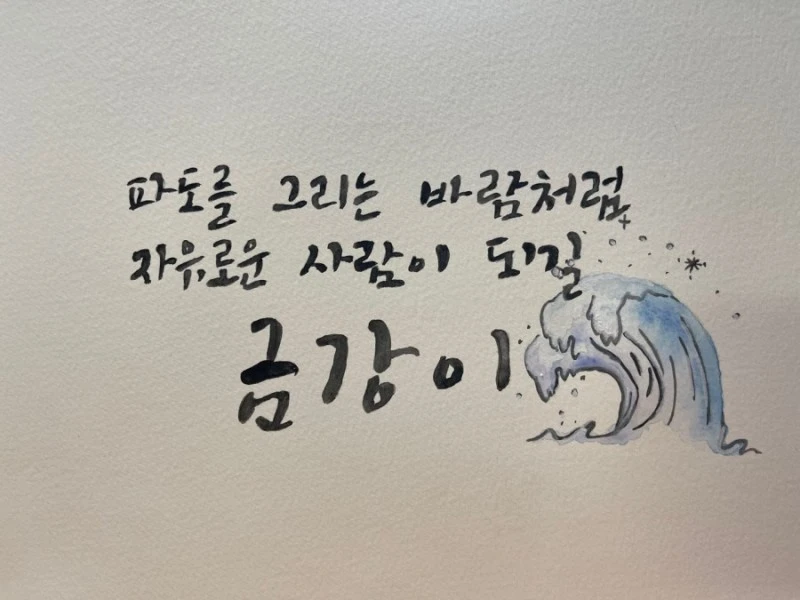 파도를 그리는 바람처럼
자유로운 사람이 되길
금강이